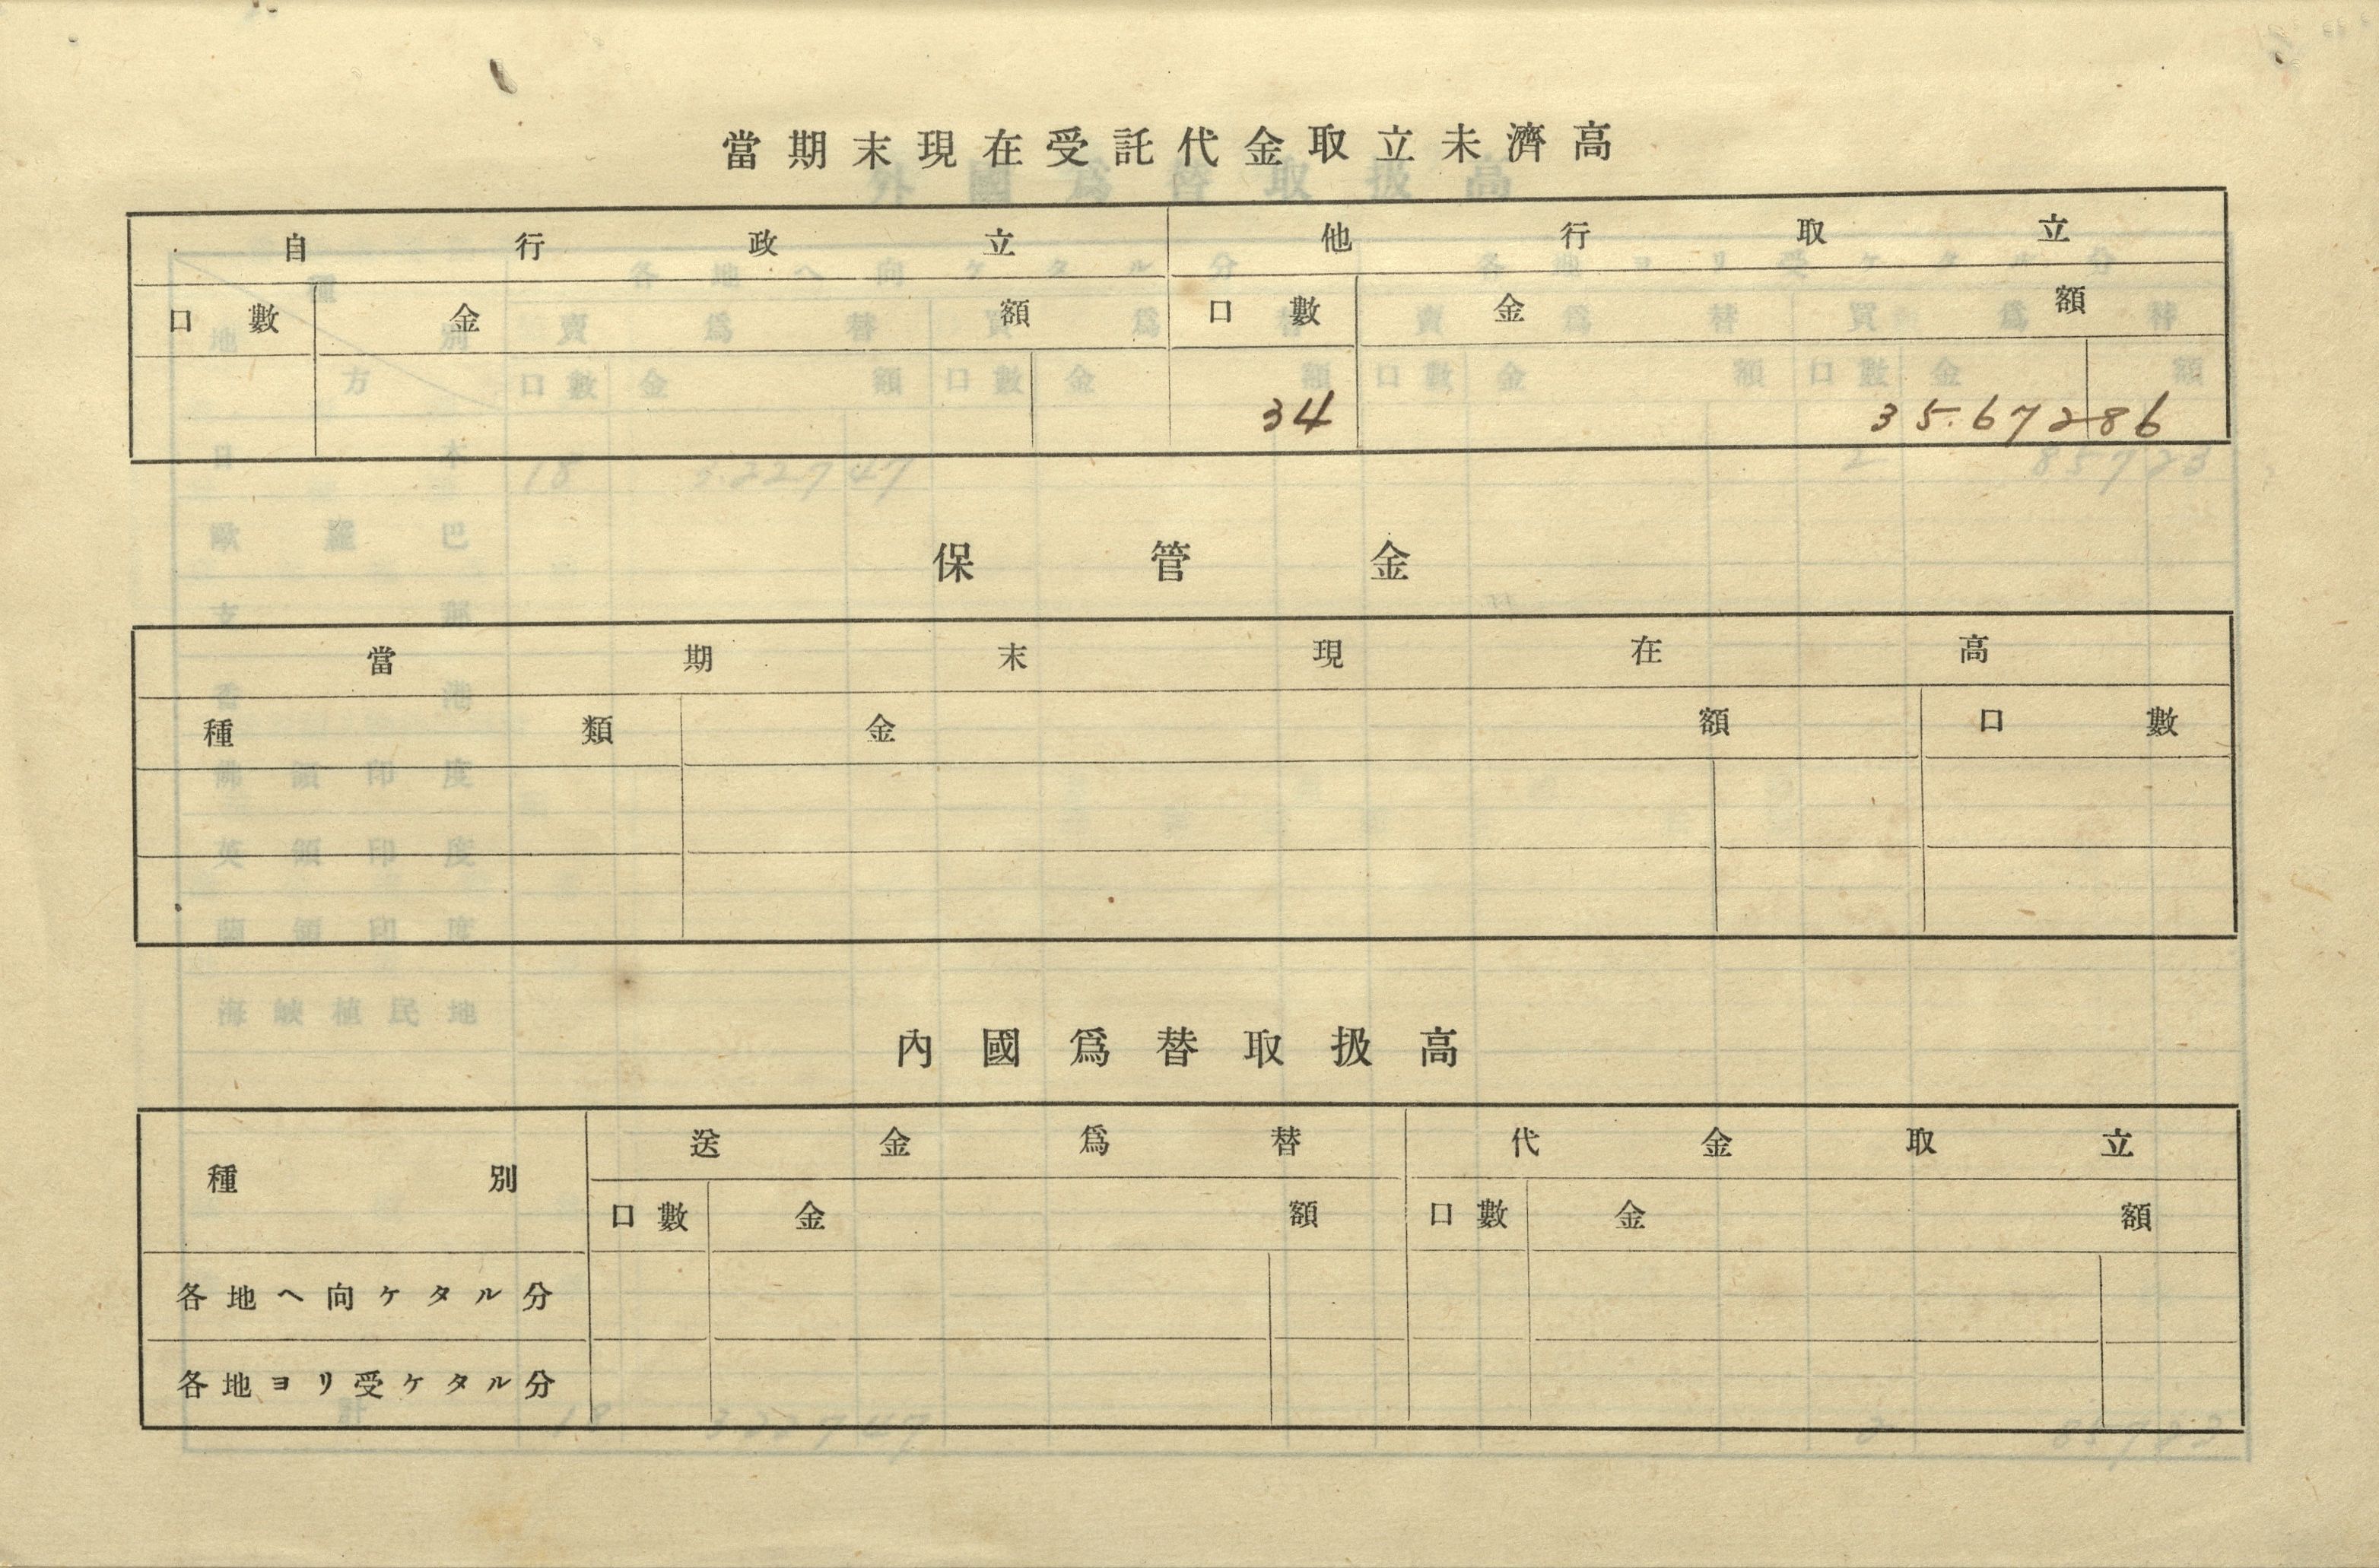 當期末現在受託代金取立未濟高
自行政立 他行取立
口數 金額 口數 金額
34 35.67286
保管金
當期末現在高
種類 金額 口數
內國爲替取扱高
種別 送金爲替 代金取立
口數 金額 口數 金額
各地ヘ向ケタル分
各地ヨリ受ケタル分